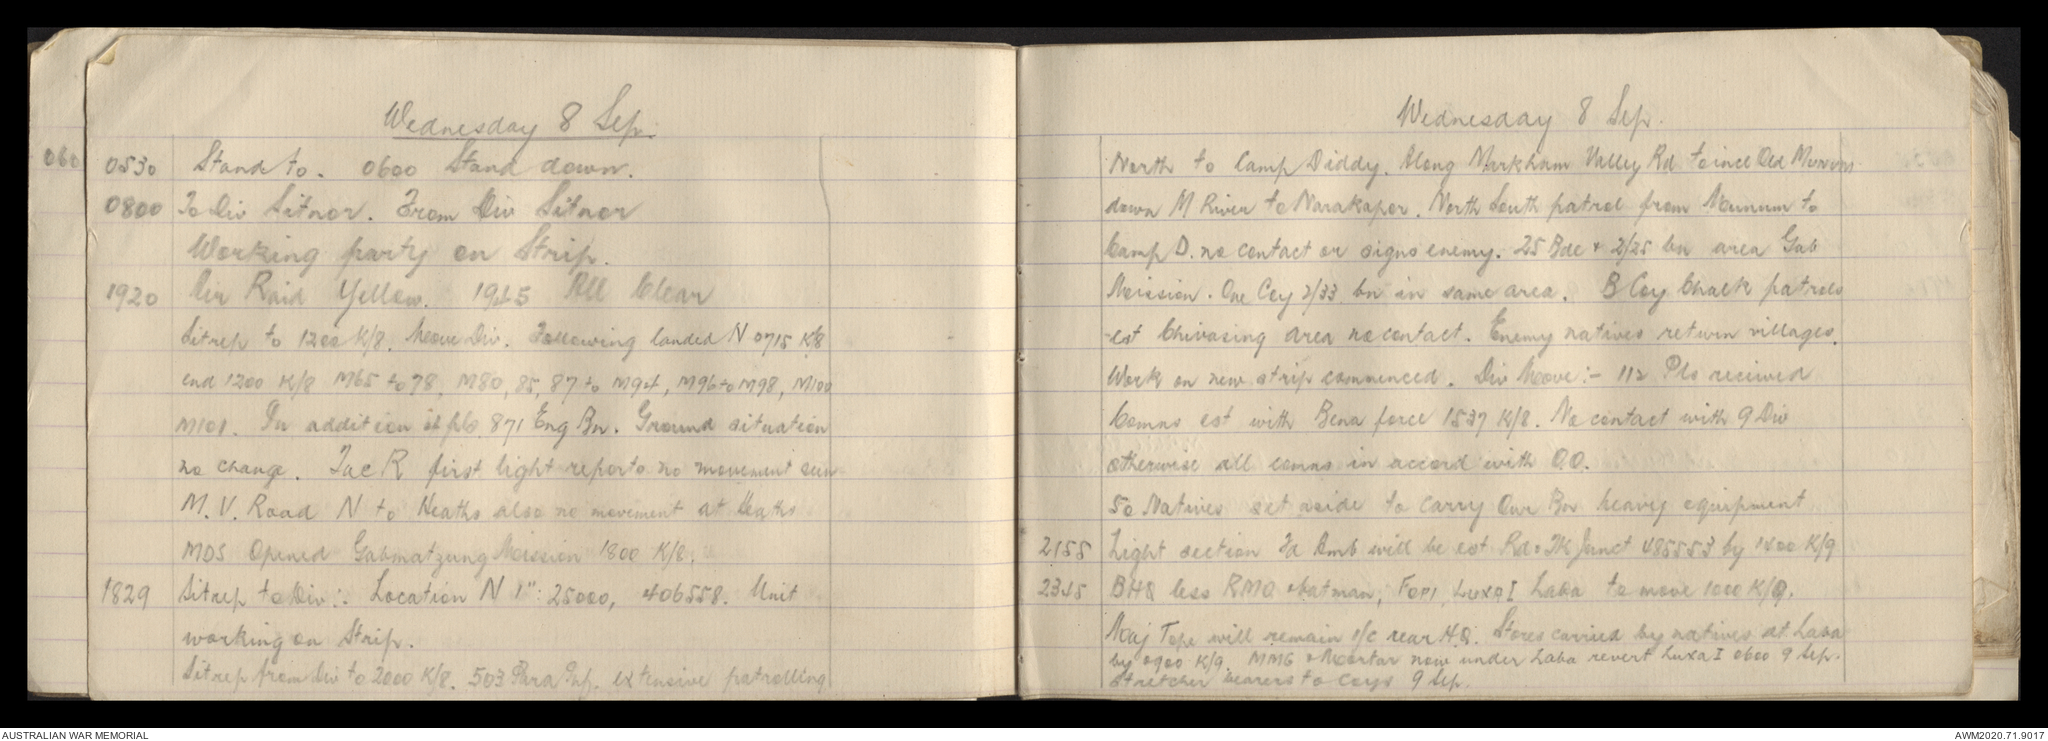 Wednesday 8 Sep.
0530 Stand to. 0600 Stand down.
0800 To Div Sitnor. From Div Sitnor
Working party on Strip.
1920 Air Raid Yellow. 1945 All Clear
Sitrep to 1200 K/8. Move Div. Following landed N 0715 K/8
end 1200 K/8 M65 to 78, M80, 85, 87 to M94, M96 to M98, M100
M101. In addition pls 871 Eng Bn. Ground situation
no change. Tac R first light reports no movement seen
M.V. Road N to Heaths also no movement at Heaths
MDS Opened Gabmatzung Mission 1800 K/8.
1829 Sitrep to Div:. Location N 1": 25000, 406558. Unit
working on Strip.
Sitrep from Div to 2000 K/8. 503 Para Inf. extensive patrolling
060
Wednesday 8 Sep.
North to Camp Diddy. Along Markham Valley Rd to incl Old Munums
down M River to Narakapor. North South patrol from Munum to
Camp D. no contact or signs enemy. 25 Bde & 2/25 bn area Gab
Mission. One Coy 2/33 bn in same area. B Coy Chalk patrols
est Chivasing area no contact. Enemy natives return villages.
Work on new strip commenced. Div Move:- 112 Pls received
Comns est with Bena force 1537 K/8. No contact with 9 Div
otherwise all comns in accord with O.O.
50 Natives set aside to carry Our Bn heavy equipment
2155 Light section Fd Amb will be est Rd-Tk Junct 485553 by 1400 K/9
2345 BHQ less RMO & batman, FOP1, Luxa I Laba to move 1000 K/9.
Maj Tope will remain i/c rear H.Q. Stores carried by natives at Laba
by 0900 K/9. MMG & Mortar now under Laba revert Luxa I 0600 9 Sep.
Stretcher bearers to Coys 9 Sep.
AUSTRALIAN WAR MEMORIAL
AWM2020.71.9017